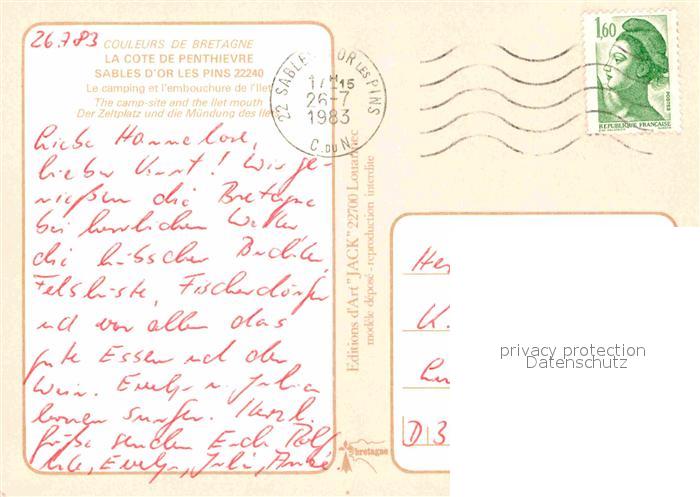 26.7.83
COULEURS DE BRETAGNE
LA COTE DE PENTHIEVRE
SABLES D'OR LES PINS 22240
Le camping et l'embouchure de l'Ilet
The camp-site and the Ilet mouth
Der Zeltplatz und die Mündung des Ilet
22 SABLES D'OR LES PINS
17H15
26-7
1983
C. DU N.
1,60
POSTES
REPUBLIQUE FRANÇAISE
Liebe Hannelore,
lieber Kurt! Wir ge-
nießen die Bretagne
bei herrlichem Wetter
die hübschen Buchten,
Felsküste, Fischerdörfer
und vor allem das
gute Essen und den
Wein. Evelyn u. Julia
lernen surfen. Herzl.
Grüße senden Euch Rolf
Evelyn, Julia, André.
Editions d'Art "JACK" 22700 Louannec
modèle déposé - reproduction interdite
bretagne
K.
D 3
privacy protection
Datenschutz